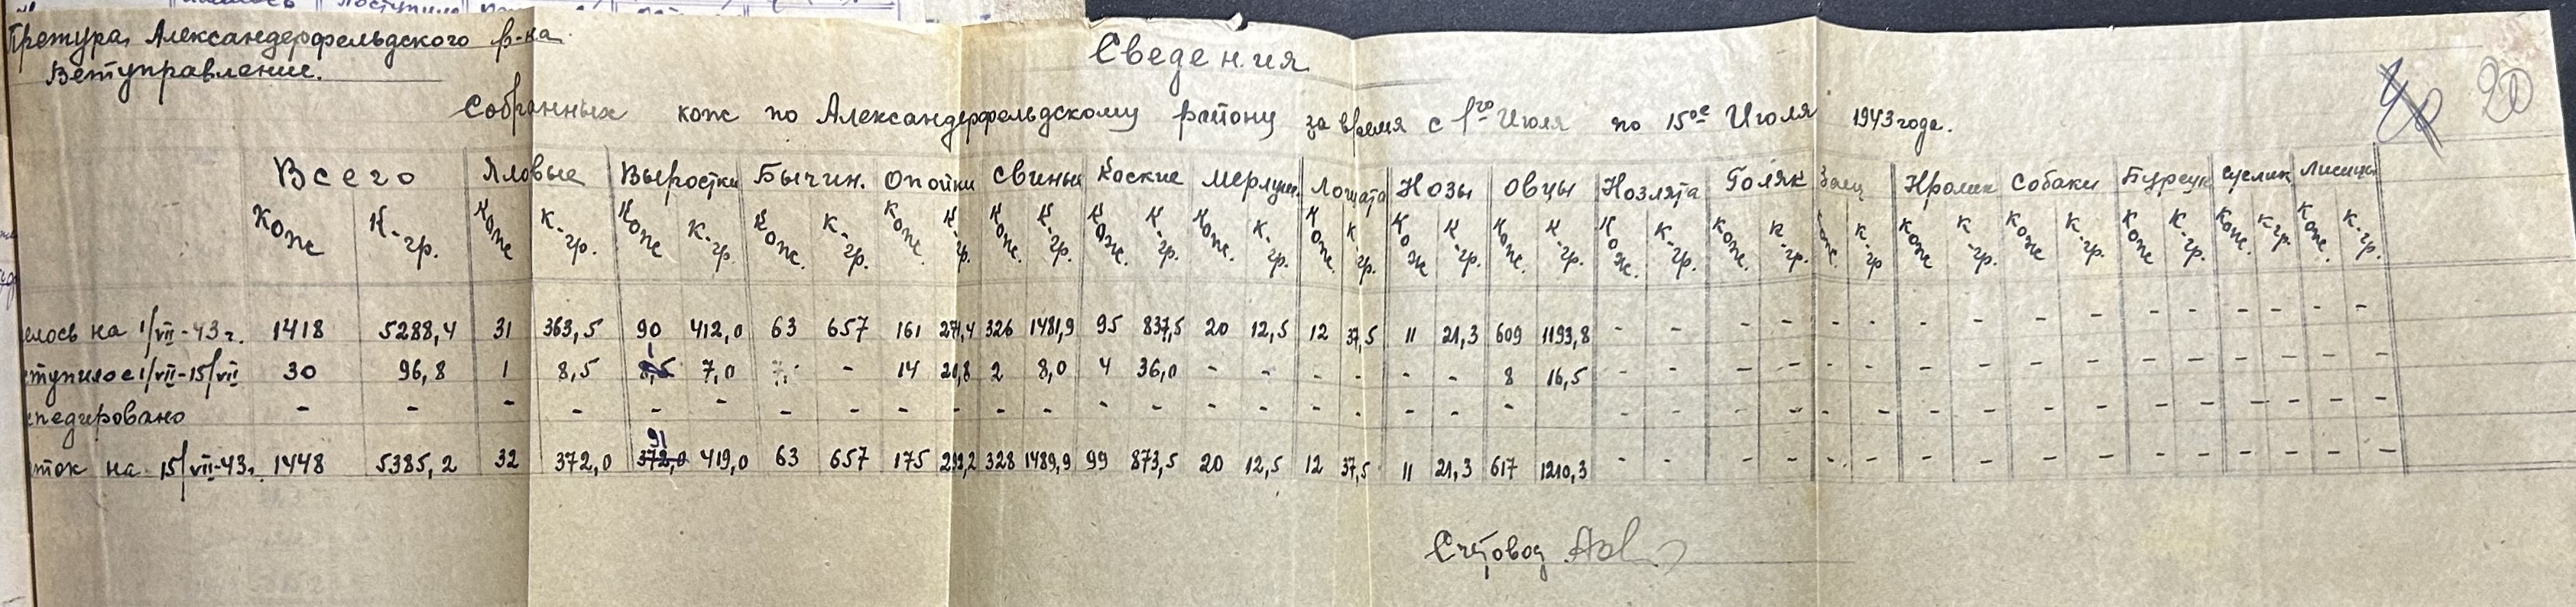 Претура Александерфельдского р-на
Ветуправление.
Сведения
Собранных кож по Александерфельдскому району за время с 1го Июля по 15ое Июля 1943 года.
20
Всего Яловые Выростки Бычин. Опойки Свиные Конские Мерлушк. Лошата Козы Овцы Козлята Голяк Заец Кролик Собаки Бурсук Суслик Лисицы
Кож К-гр. Кож К-гр. Кож К-гр. Кож. К-гр. Кож. К-гр. Кож. К-гр. Кож. К-гр. Кож. К-гр. Кож. К-гр. Кож К-гр. Кож. К-гр. Кож. К-гр. Кож. К-гр. Кож. К-гр Кож К-гр. Кож К-гр. Кож К-гр. Кож. К-гр. Кож. К-гр.
елось на 1/VII-43 г. 1418 5288,4 31 363,5 90 412,0 63 657 161 271,4 326 1481,9 95 837,5 20 12,5 12 37,5 11 21,3 609 1193,8 - - - - - - - - - - - - - - - -
ступило с 1/VII-15/VII 30 96,8 1 8,5 1 7,0 - - 14 20,8 2 8,0 4 36,0 - - - - - - 8 16,5 - - - - - - - - - - - - - - - -
спедировано - - - - - - - - - - - - - - - - - - - - - - - - - - - - - - - - - - - - -
ток на 15/VII-43 г. 1448 5385,2 32 372,0 91 419,0 63 657 175 292,2 328 1489,9 99 873,5 20 12,5 12 37,5 11 21,3 617 1210,3 - - - - - - - - - - - - - - - -
Счетовод